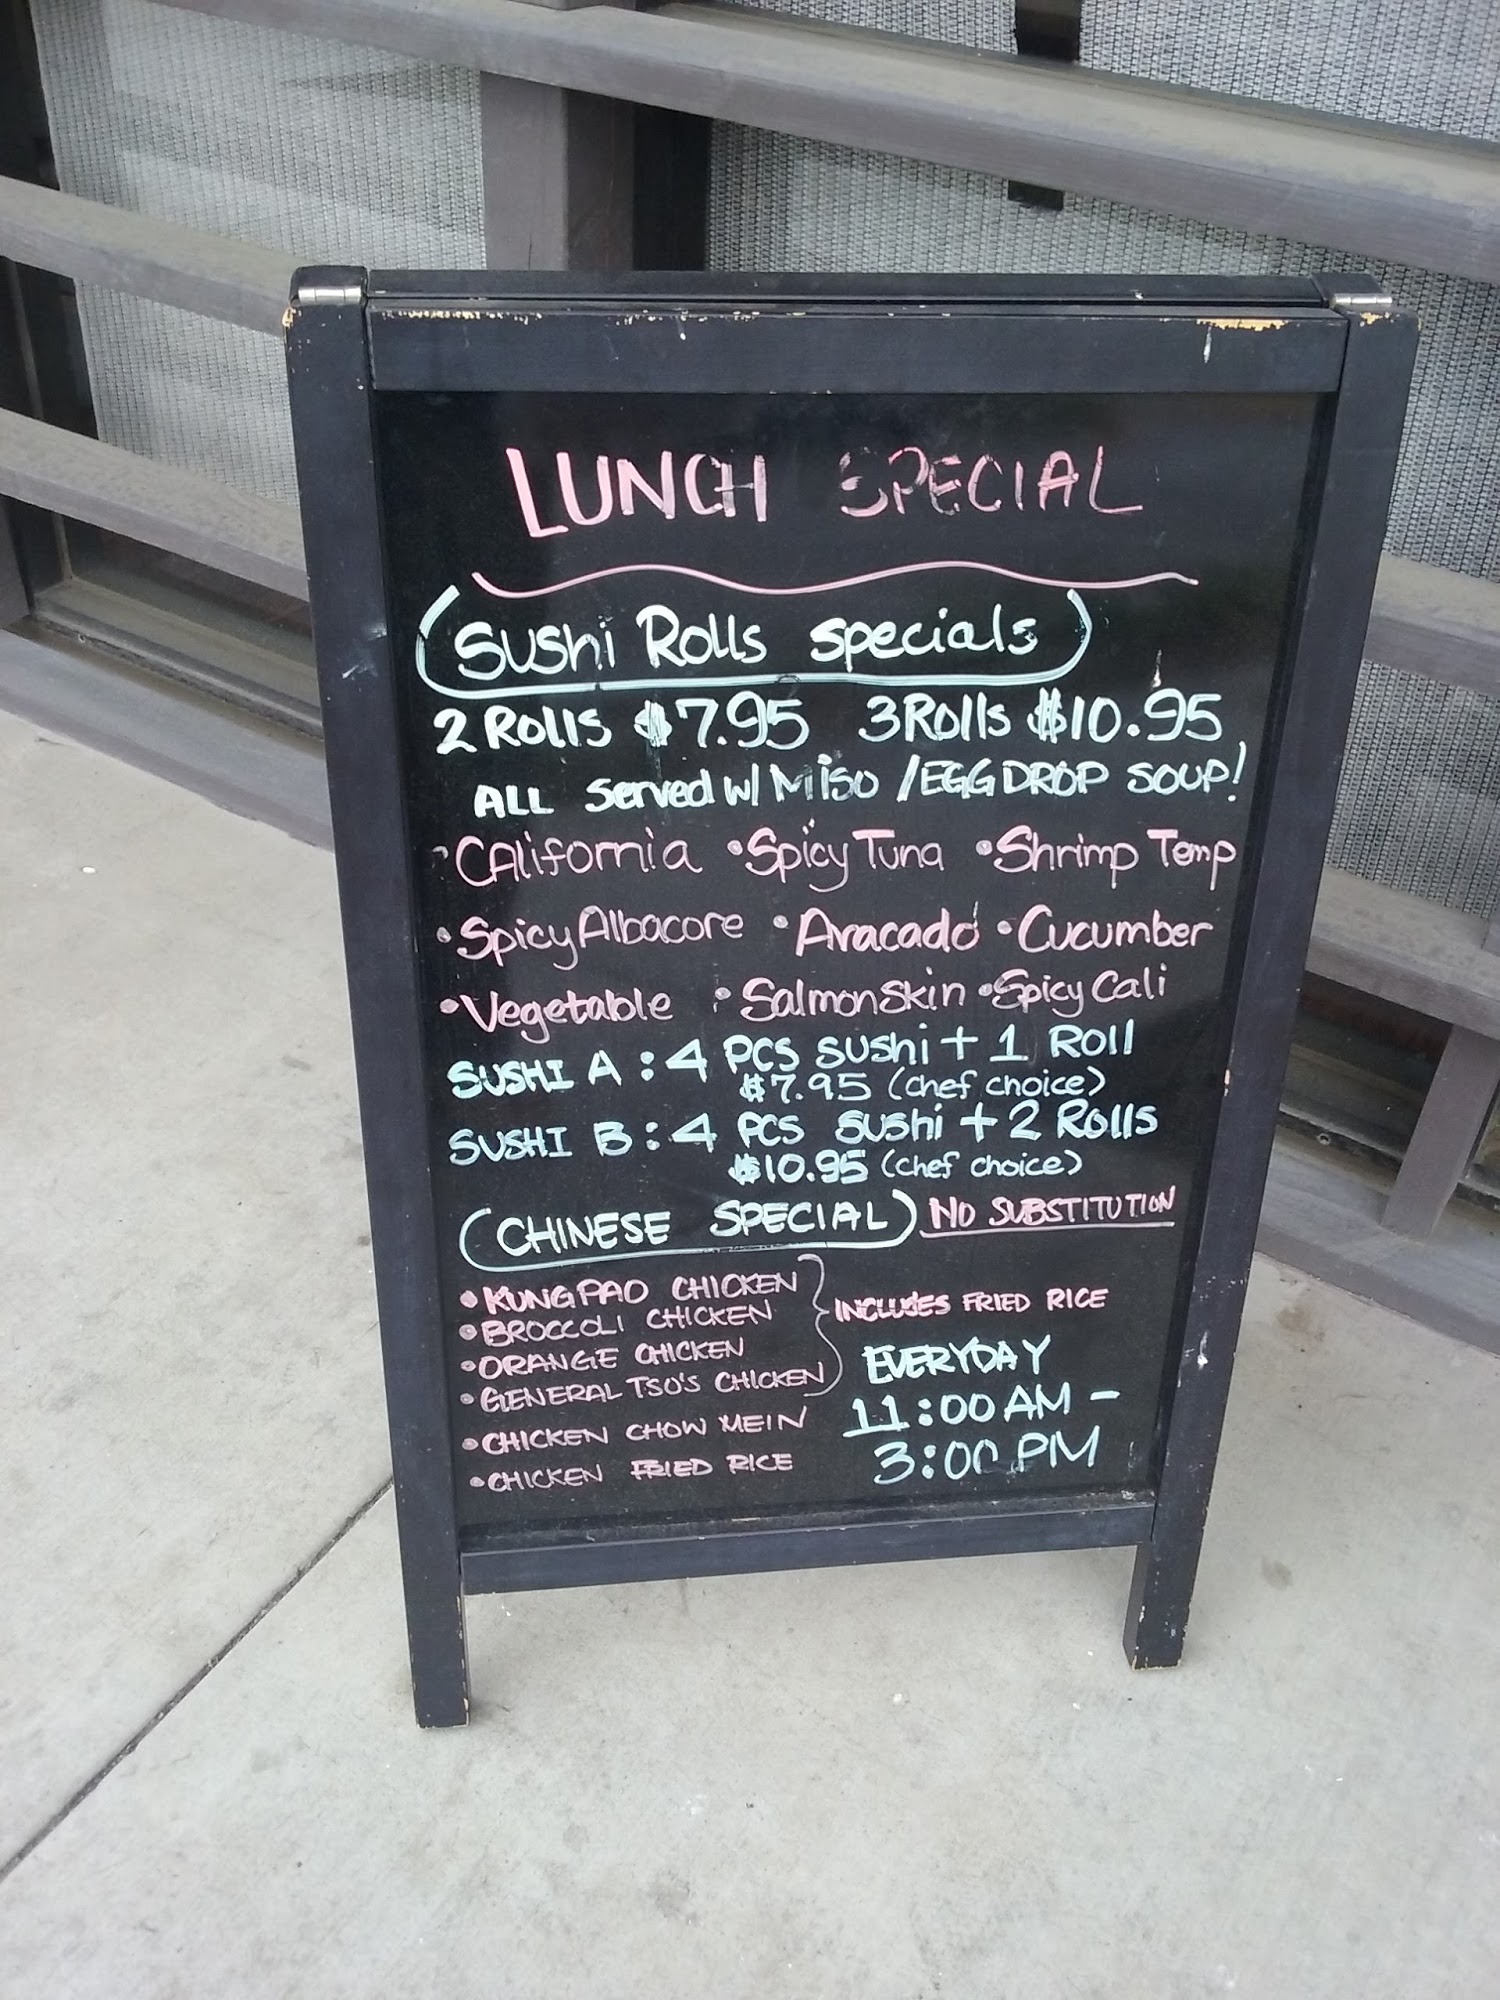 LUNCH SPECIAL
Sushi Rolls specials
2 Rolls $7.95 3 Rolls $10.95
ALL Served w/ Miso / EGG DROP SOUP!
• California • Spicy Tuna • Shrimp Temp
• Spicy Albacore • Avacado • Cucumber
• Vegetable • Salmon Skin • Spicy Cali
SUSHI A : 4 PCS sushi + 1 Roll
$7.95 (chef choice)
SUSHI B : 4 PCS sushi + 2 Rolls
$10.95 (chef choice)
CHINESE SPECIAL NO SUBSTITUTION
• KUNG PAO CHICKEN
• BROCCOLI CHICKEN
• ORANGE CHICKEN
• GENERAL TSO'S CHICKEN
INCLUDES FRIED RICE
• CHICKEN CHOW MEIN
• CHICKEN FRIED RICE
EVERYDAY
11:00 AM -
3:00 PM